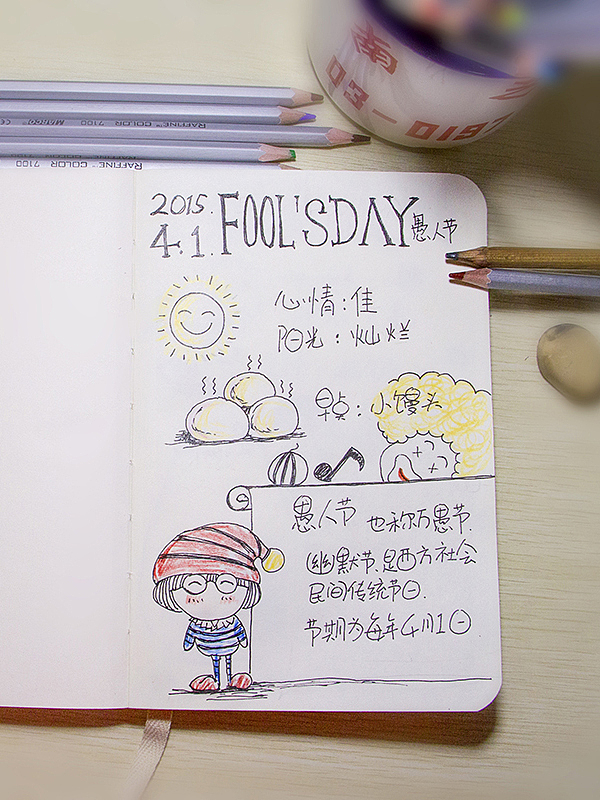 MARCO RAFFINE™ COLOR 7100
RAFFINE™ COLOR 7100
2015.
4.1. FOOL'SDAY 愚人节
心情:佳
阳光:灿烂
早点:小馒头
愚人节 也称万愚节.
幽默节.是西方社会
民间传统节日.
节期为每年4月1日